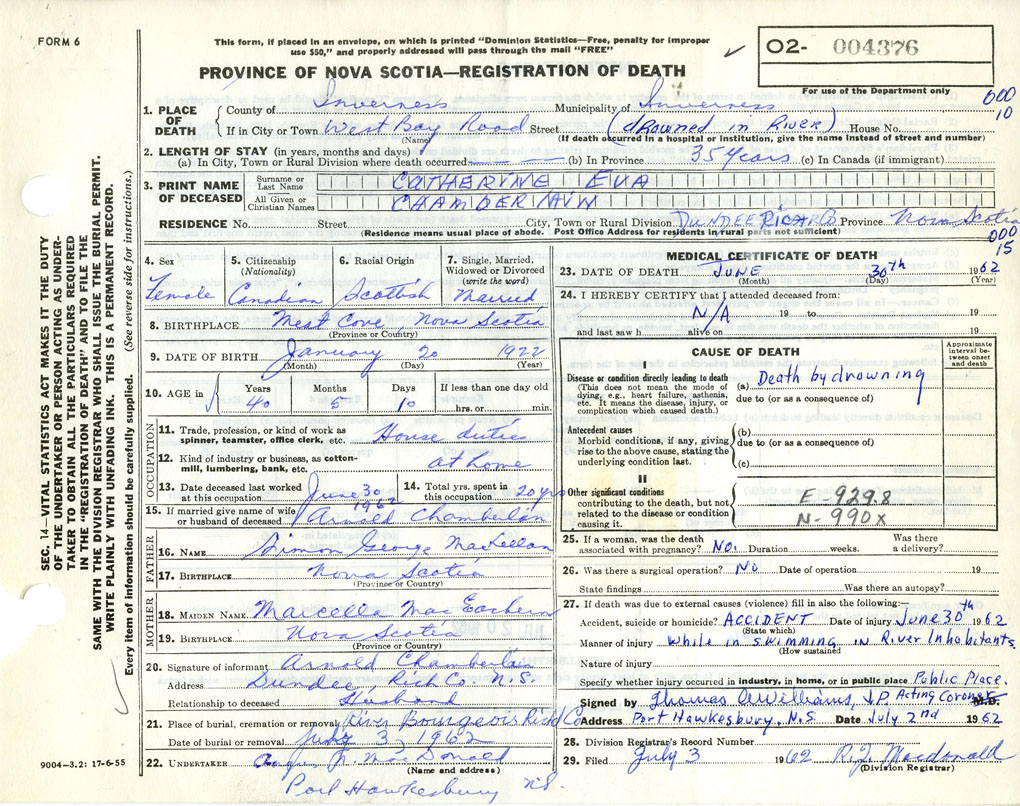 FORM 6
This form, if placed in an envelope, on which is printed "Dominion Statistics—Free, penalty for improper
use $50," and properly addressed will pass through the mail "FREE"
✓
O2- 004376
For use of the Department only
PROVINCE OF NOVA SCOTIA—REGISTRATION OF DEATH
000
10
1. PLACE OF DEATH
County of Inverness Municipality of Inverness
If in City or Town West Bay Road Street (drowned in River) House No.
(Name) (If death occurred in a hospital or institution, give the name instead of street and number)
2. LENGTH OF STAY (in years, months and days)
(a) In City, Town or Rural Division where death occurred — — (b) In Province 35 Years (c) In Canada (if immigrant)
3. PRINT NAME OF DECEASED
Surname or Last Name CATHERINE EVA
All Given or Christian Names CHAMBERLAIN
RESIDENCE No. Street City, Town or Rural Division DUNDEE RICH CO Province Nova Scotia
(Residence means usual place of abode. Post Office Address for residents in rural parts not sufficient)
000
15
4. Sex
Female
5. Citizenship (Nationality)
Canadian
6. Racial Origin
Scottish
7. Single, Married, Widowed or Divorced (write the word)
Married
8. BIRTHPLACE Meat Cove, Nova Scotia
(Province or Country)
9. DATE OF BIRTH January 20 1922
(Month) (Day) (Year)
10. AGE in Years Months Days If less than one day old
40 5 10 hrs. or min.
OCCUPATION
11. Trade, profession, or kind of work as spinner, teamster, office clerk, etc. House duties
12. Kind of industry or business, as cotton-mill, lumbering, bank, etc. at home
13. Date deceased last worked at this occupation June 30 1962
14. Total yrs. spent in this occupation 20 yrs
15. If married give name of wife or husband of deceased Arnold Chamberlain
FATHER
16. NAME Simon George MacLellan
17. BIRTHPLACE Nova Scotia
(Province or Country)
MOTHER
18. MAIDEN NAME Marcella MacEachern
19. BIRTHPLACE Nova Scotia
(Province or Country)
20. Signature of informant Arnold Chamberlain
Address Dundee, Rich Co. N.S.
Relationship to deceased Husband
21. Place of burial, cremation or removal River Bourgeois Rich Co
Date of burial or removal July 3, 1962
22. UNDERTAKER MacDonald
(Name and address)
Port Hawkesbury NS.
MEDICAL CERTIFICATE OF DEATH
23. DATE OF DEATH JUNE 30th 1962
(Month) (Day) (Year)
24. I HEREBY CERTIFY that I attended deceased from:
N/A 19 to 19
and last saw h alive on 19
CAUSE OF DEATH
Approximate interval between onset and death
I
Disease or condition directly leading to death
(This does not mean the mode of dying, e.g., heart failure, asthenia, etc. It means the disease, injury, or complication which caused death.)
(a) Death by drowning
due to (or as a consequence of)
Antecedent causes
Morbid conditions, if any, giving rise to the above cause, stating the underlying condition last.
(b)
due to (or as a consequence of)
(c)
II
Other significant conditions
contributing to the death, but not related to the disease or condition causing it.
E-929.8
N-990x
25. If a woman, was the death associated with pregnancy? No. Duration weeks. Was there a delivery?
26. Was there a surgical operation? No Date of operation 19
State findings Was there an autopsy?
27. If death was due to external causes (violence) fill in also the following:—
Accident, suicide or homicide? ACCIDENT Date of injury June 30th 1962
(State which)
Manner of injury While in SWIMMING in River Inhabitants
(How sustained
Nature of injury
Specify whether injury occurred in industry, in home, or in public place Public Place.
Signed by Thomas Williams, J.P. Acting Coroner M.D.
Address Port Hawkesbury, N.S. Date July 2nd 1962
28. Division Registrar's Record Number
29. Filed July 3 1962 R.J. Macdonald
(Division Registrar)
SEC. 14—VITAL STATISTICS ACT MAKES IT THE DUTY
OF THE UNDERTAKER OR PERSON ACTING AS UNDER-
TAKER TO OBTAIN ALL THE PARTICULARS REQUIRED
IN THE "REGISTRATION OF DEATH" AND TO FILE THE
SAME WITH THE DIVISION REGISTRAR WHO SHALL ISSUE THE BURIAL PERMIT.
WRITE PLAINLY WITH UNFADING INK. THIS IS A PERMANENT RECORD.
Every item of information should be carefully supplied. (See reverse side for instructions.)
9004-3.2: 17-6-55